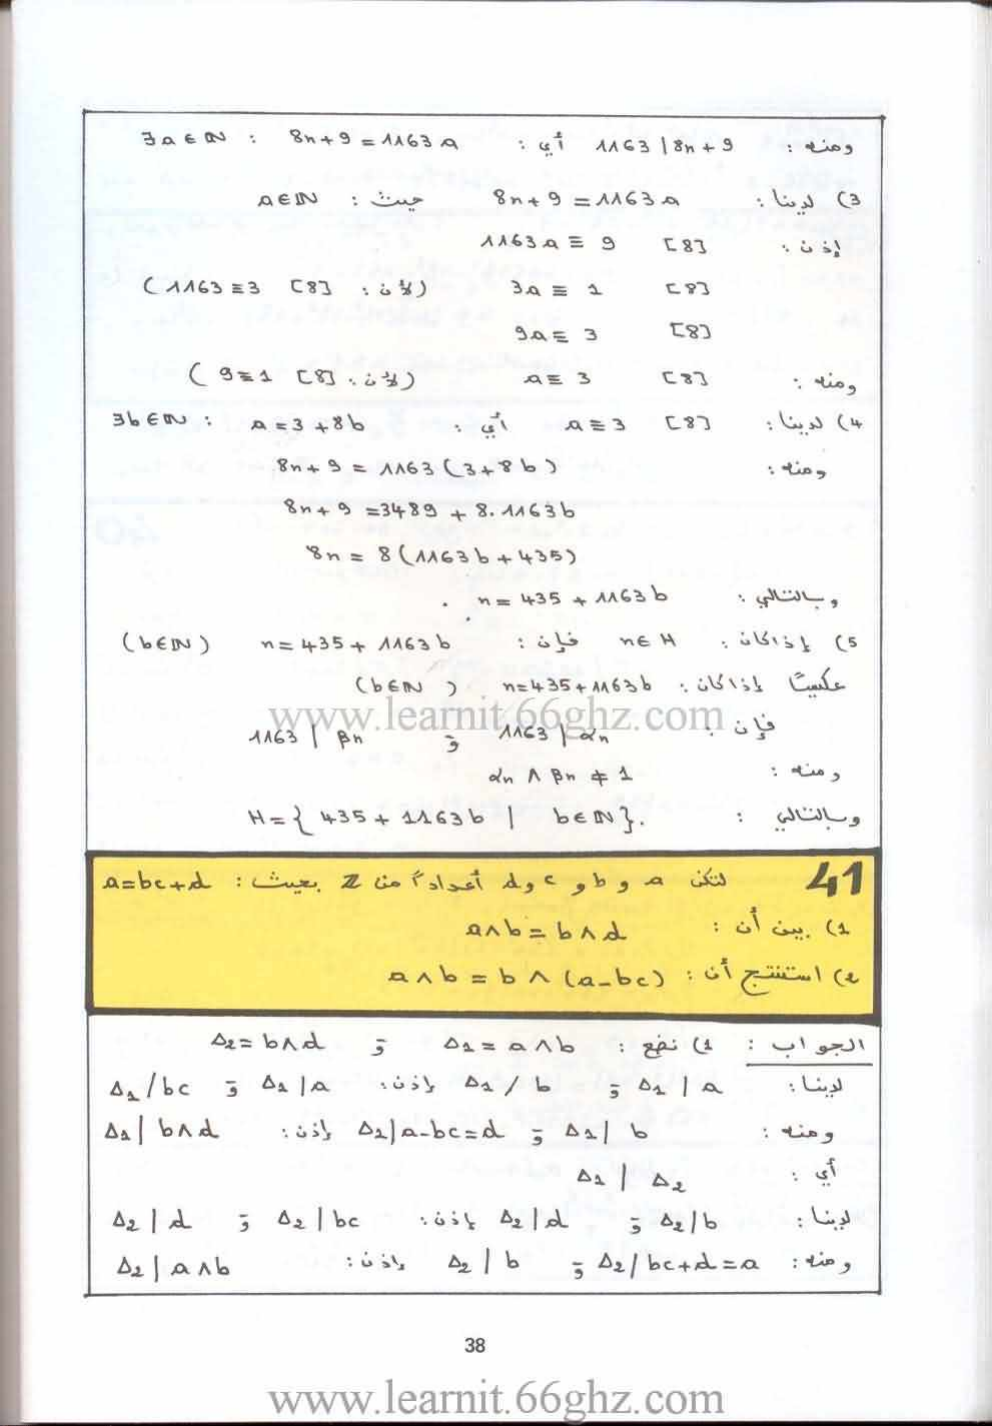 ومنه : 1163 | 8n+9 أي : ∃a∈ℕ : 8n+9 = 1163a
3) لدينا : 8n+9 = 1163a حيث : a∈ℕ
إذن : 1163a ≡ 9 [8]
3a ≡ 1 [8] (لأن : 1163 ≡ 3 [8])
9a ≡ 3 [8]
ومنه : a ≡ 3 [8] (لأن : 9 ≡ 1 [8])
4) لدينا : a ≡ 3 [8] أي : a = 3+8b : ∃b∈ℕ
ومنه : 8n+9 = 1163(3+8b)
8n+9 = 3489 + 8.1163b
8n = 8(1163b+435)
وبالتالي : n = 435 + 1163b .
5) إذا كان : n∈H فإن : n = 435 + 1163b (b∈ℕ)
عكسيا إذا كان : n = 435+1163b (b∈ℕ)
www.learnit.66ghz.com
فإن : 1163 | αn و 1163 | βn
ومنه : αn ∧ βn ≠ 1
وبالتالي : H = { 435 + 1163b | b∈ℕ }.
41 لتكن a و b و c و d أعدادا من ℤ بحيث : a=bc+d
1) بين أن : a∧b = b∧d
2) استنتج أن : a∧b = b∧(a-bc)
الجواب : 1) نضع : Δ1 = a∧b و Δ2 = b∧d
لدينا : Δ1 | a و Δ1 / b إذن : Δ1 | a و Δ1 / bc
ومنه : Δ1 | b و Δ1 | a-bc=d إذن : Δ1 | b∧d
أي : Δ1 | Δ2
لدينا : Δ2 / b و Δ2 | d إذن : Δ2 | bc و Δ2 | d
ومنه : Δ2 / bc+d=a و Δ2 | b إذن : Δ2 | a∧b
38
www.learnit.66ghz.com